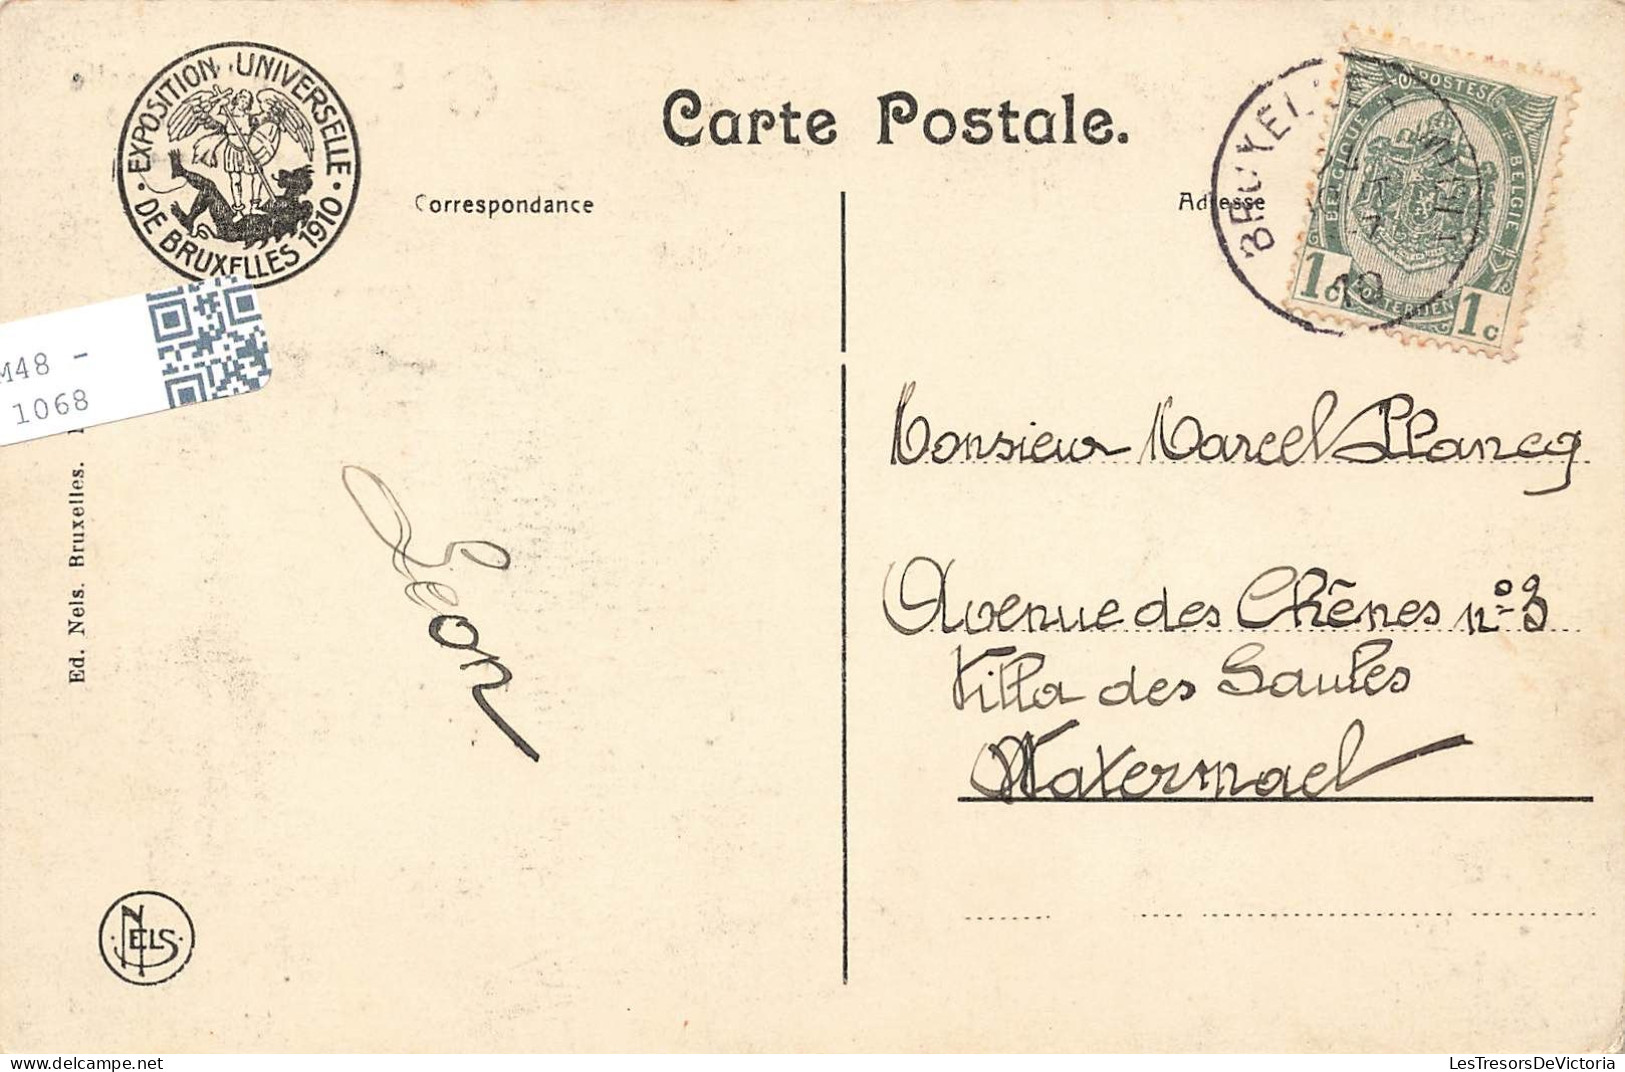 EXPOSITION UNIVERSELLE
DE BRUXELLES 1910
Carte Postale.
Correspondance
Adresse
BRUXELLES
10
POSTES
BELGIQUE
BELGIË
POSTERIJEN
1c
1c
M48 -
1068
Ed. Nels. Bruxelles.
Leon
Monsieur Marcel Plancq
Avenue des Chênes n°3
Villa des Saules
Watermael
NELS
LesTresorsDeVictoria